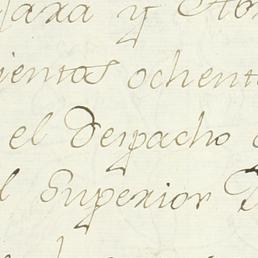 y
ientos ochent
el Despacho
l Superior